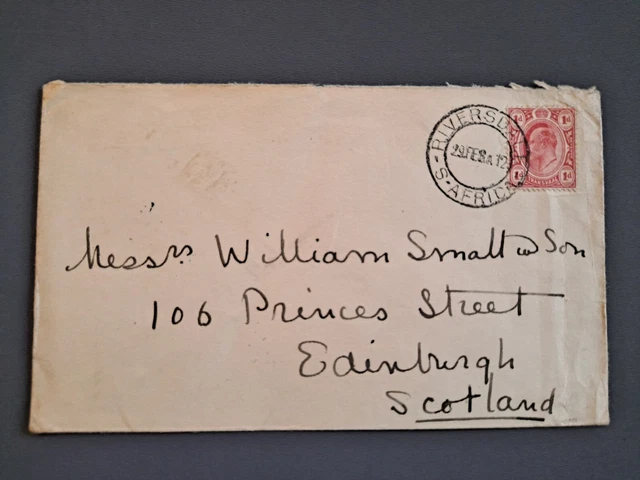 RIVERSDALE
29 FE 12
S. AFRICA
1d 1d
1d 1d
Messrs William Small & Son
106 Princes Street
Edinburgh
Scotland